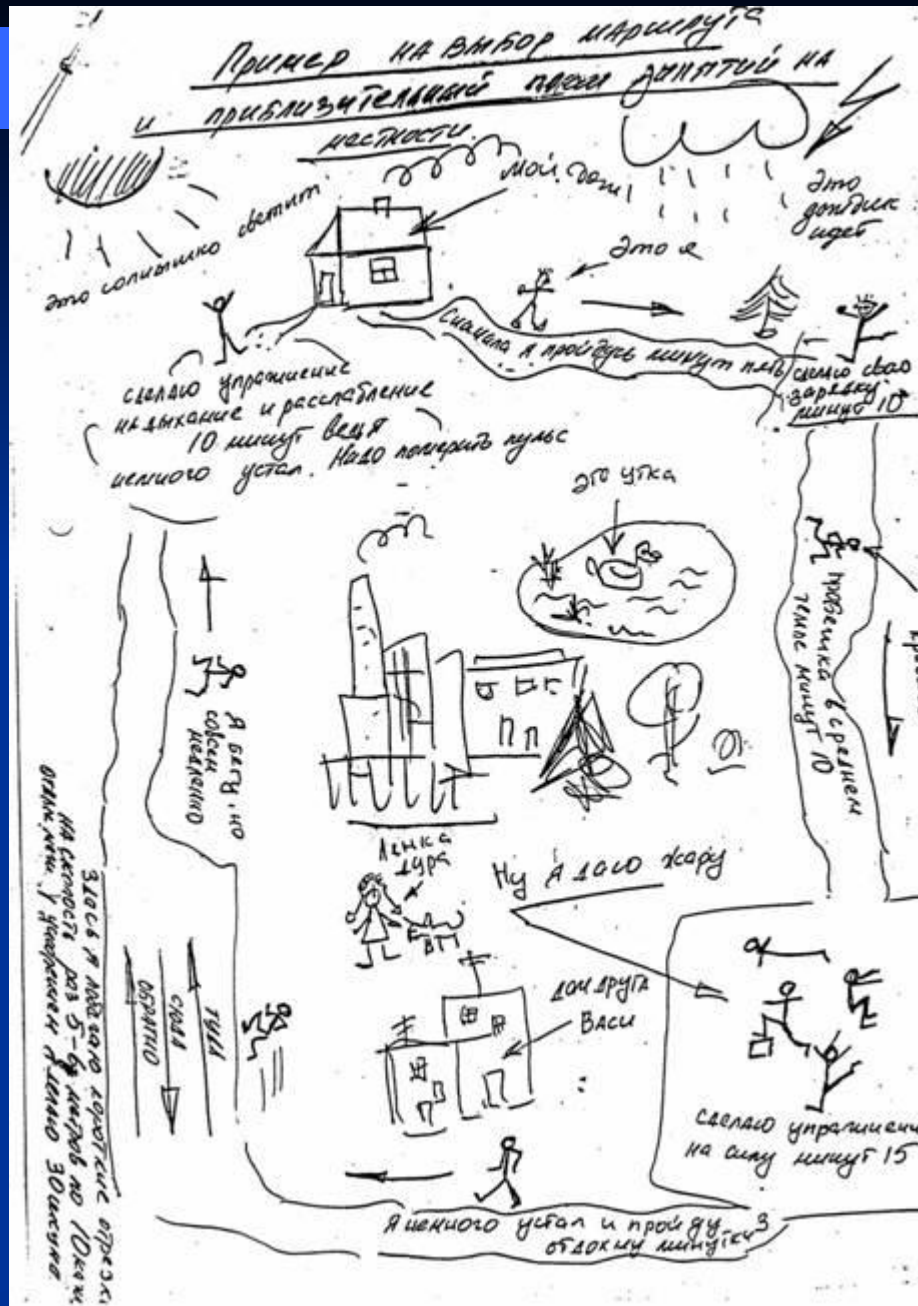 Пример на выбор маршрута
и приблизительный план занятий на
местности.
Это солнышко светит
мой дом
Это дождик идёт
Это я
Сначала я пройдусь минут пять
сделаю свою
зарядку
минут 10
сделаю упражнение
на дыхание и расслабление
10 минут ведь я
немного устал. Надо померить пульс
это утка
пробежка в среднем
темпе минут 10
Я бегу, но
совсем
медленно
Ленка
дура
Ну я даю жару
дом друга
Васи
туда
сюда
обратно
Здесь я короткие отрезки
на скорость раз 5-6 метров по
сделаю упражнени
на силу минут 15
Я немного устал и пройду
отдохну минутки 3